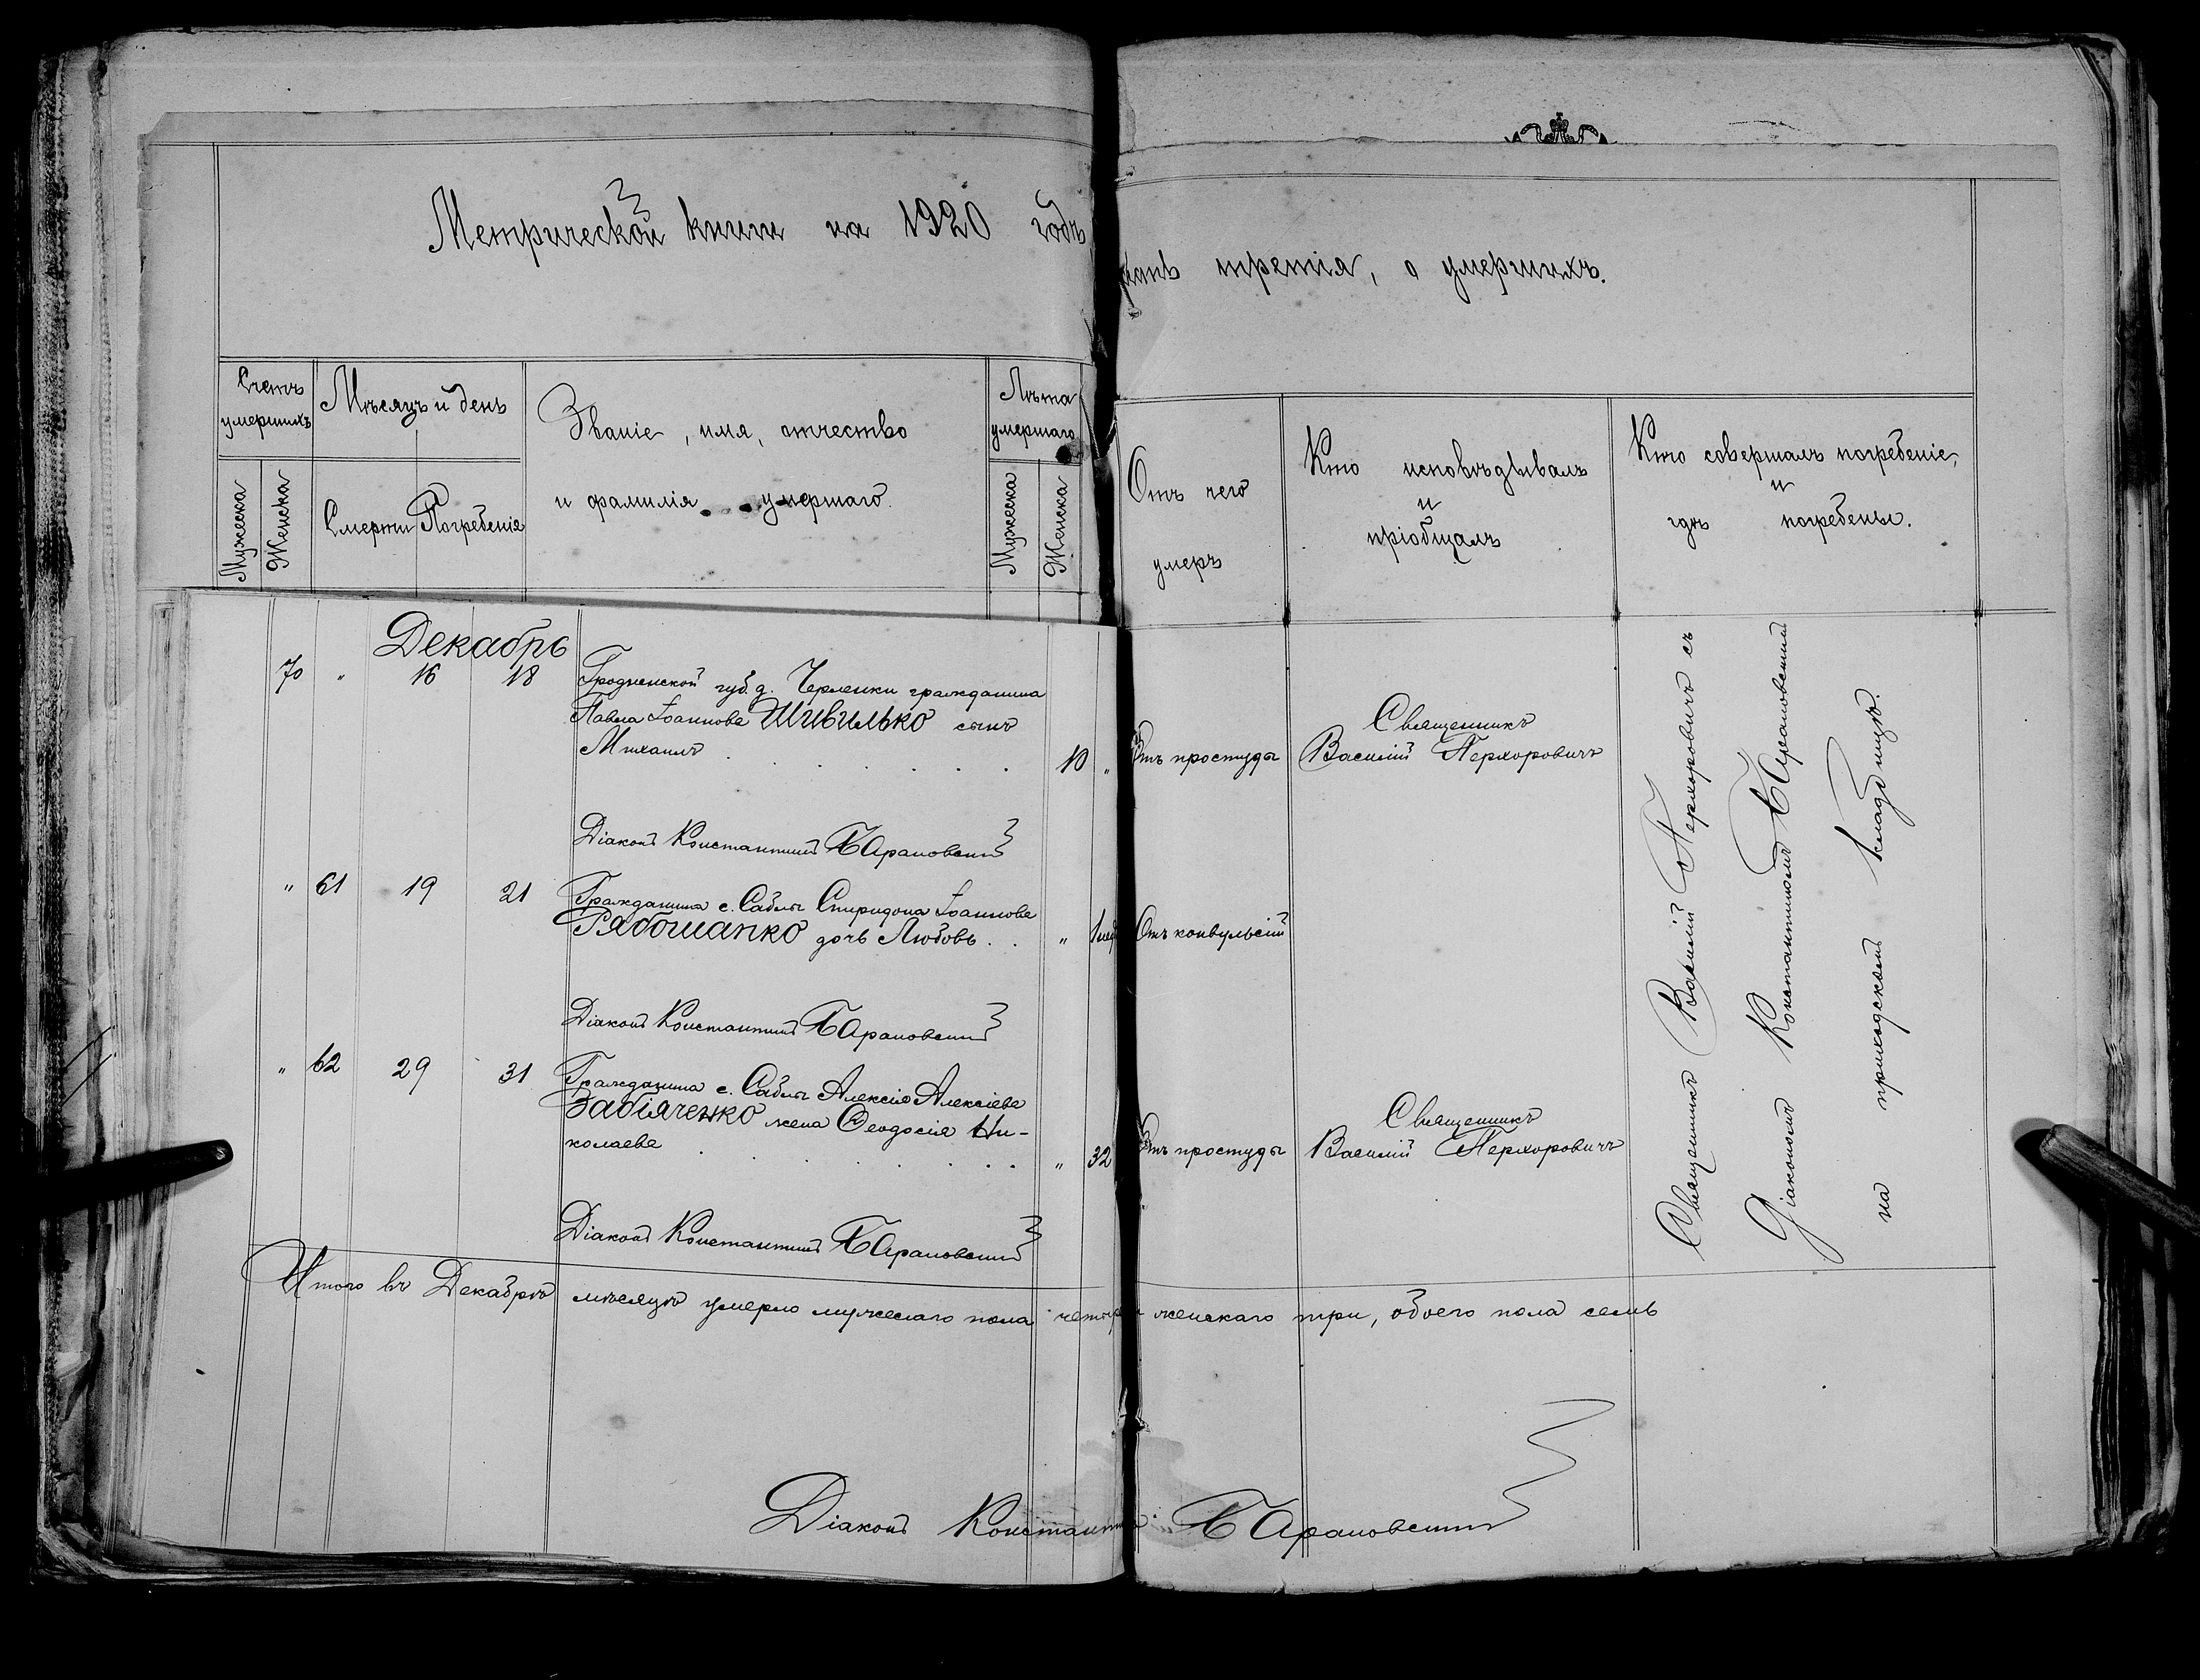 Метрической книги на 1920 годъ
часть третія, о умершихъ.
Счетъ умершихъ
Мужеска
Женска
Мѣсяцъ и день
Смерти
Погребенія
Званіе, имя, отчество
и фамилія умершаго.
Лѣта умершаго
Мужеска
Женска
Отъ чего
умеръ
Кто исповѣдывалъ
и
пріобщалъ
Кто совершалъ погребеніе,
и
гдѣ погребены.
Декабрь
70 " 16 18 Гродненской губ. д. Черленки гражданина
Павла Іоаннова Шивилько сынъ
Михаилъ . . . . . . . 10 " Отъ простуды
Священникъ
Василій Перхоровичъ
Діаконъ Константинъ Барановскій
" 61 19 21 Гражданина с. Саблъ Спиридона Іоаннова
Рябошапко дочь Любовь . . " 1 нед Отъ конвульсій
Діаконъ Константинъ Барановскій
" 62 29 31 Гражданина с. Саблъ Алексія Алексіева
Забіяченко жена Ѳеодосія Ни-
колаева . . . . . . . " 32 Отъ простуды
Священникъ
Василій Перхоровичъ
Діаконъ Константинъ Барановскій
Священникъ Василій Перхоровичъ съ
Діакономъ Константиномъ Барановскій
на приходскомъ кладбищѣ.
Итого въ Декабрѣ мѣсяцѣ умерло мужескаго пола четыре женскаго три, обоего пола семь
Діаконъ Константинъ Барановскій